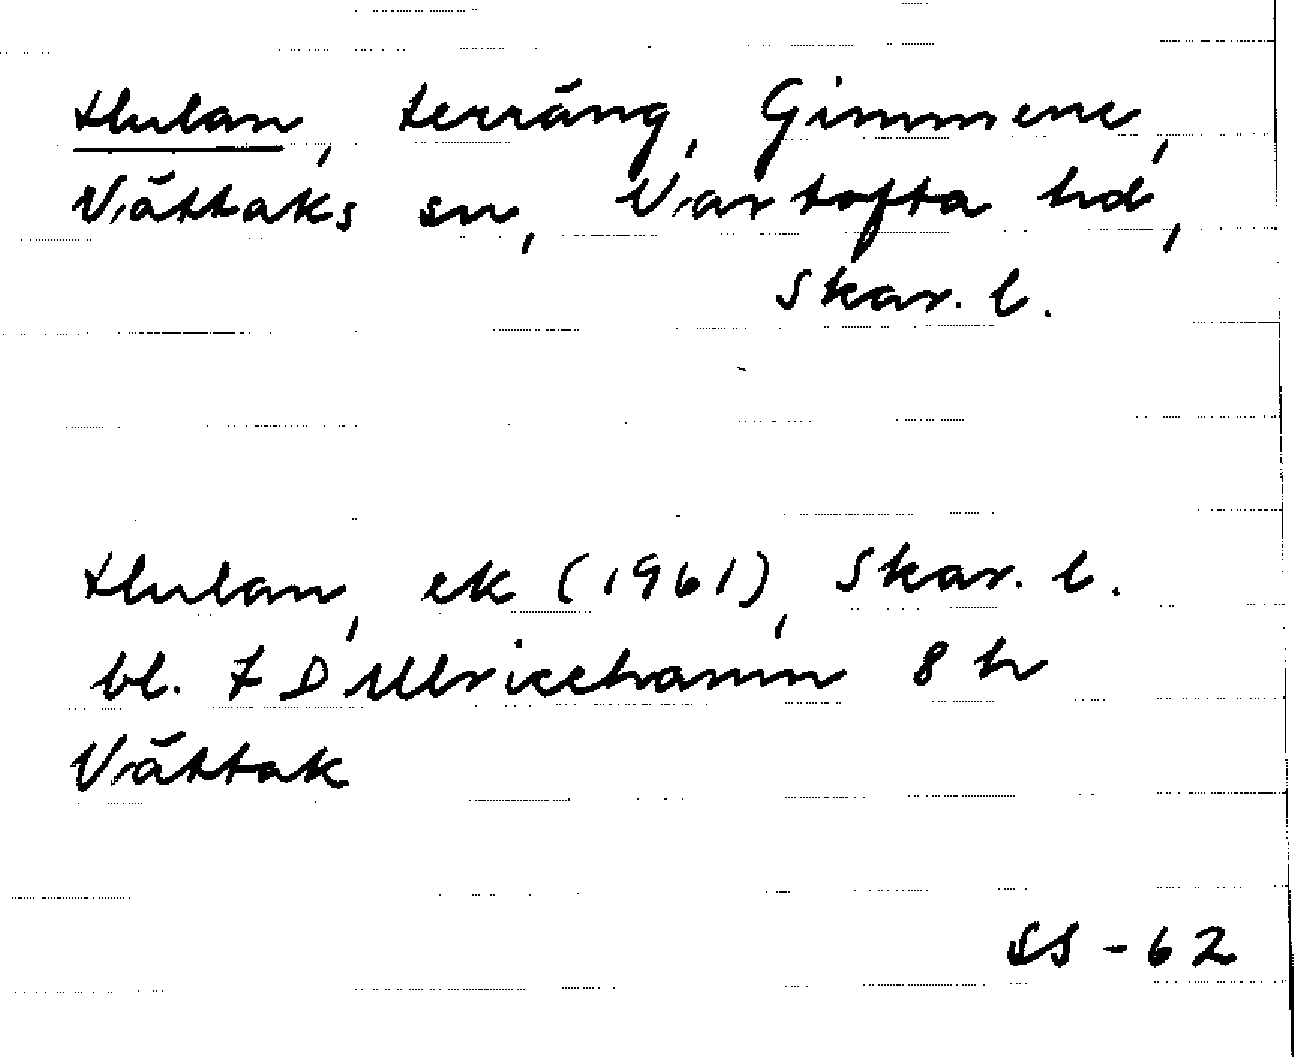 Hulan, terräng, Gimmene,
Vättaks sn, Vartofta hd,
Skar. l.
Hulan, ek (1961), Skar. l.
bl. 7 D Ulricehamn 8 h
Vättak
SS - 62